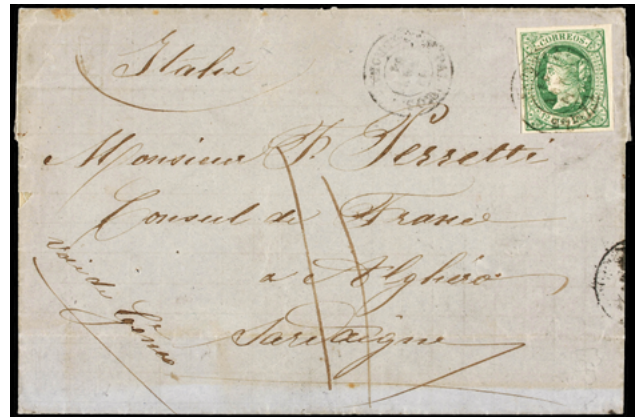 Italie
CORREOS
Monsieur P. Perretti
Consul de France
a Alghéro
Sardaigne
voie de Gênes